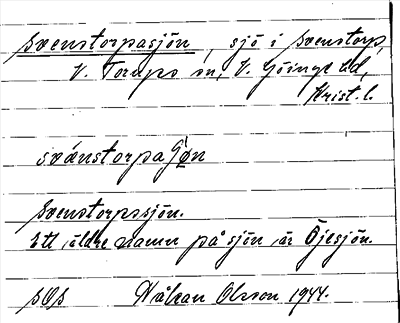 Svenstorpasjön, sjö i Svenstorp,
V. Torups sn, V. Göinge hd,
Krist. l.
svä́nstorpaʃǿn
Svenstorpssjön.
Ett äldre namn på sjön är Öjesjön.
SOS Håkan Olsson 1944.